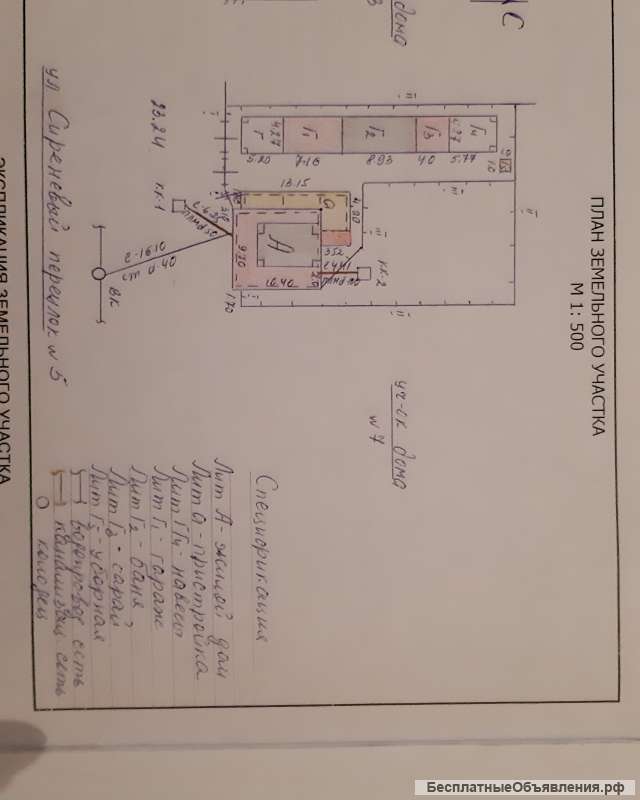 С
ПЛАН ЗЕМЕЛЬНОГО УЧАСТКА
М 1: 500
дома
уч-ск дома
№ 7
Г
Г1
Г2
Г3
Г4
4.27
5.20
7.16
8.93
40
5.77
13.15
4.20
а
А
9.20
10.40
3.52
1.70
КК-1
КК-2
23.24
ВК
ул. Сиреневый переулок № 5
Спецификация
Лит А - жилой дом
Лит а - пристройка
Лит Г Г4 - навесы
Лит Г1 - гараж
Лит Г2 - баня
Лит Г3 - сарай
Лит Г5 - уборная
водопровод. сеть
канализац. сеть
колодец
ЭКСПЛИКАЦИЯ ЗЕМЕЛЬНОГО УЧАСТКА
БесплатныеОбъявления.рф